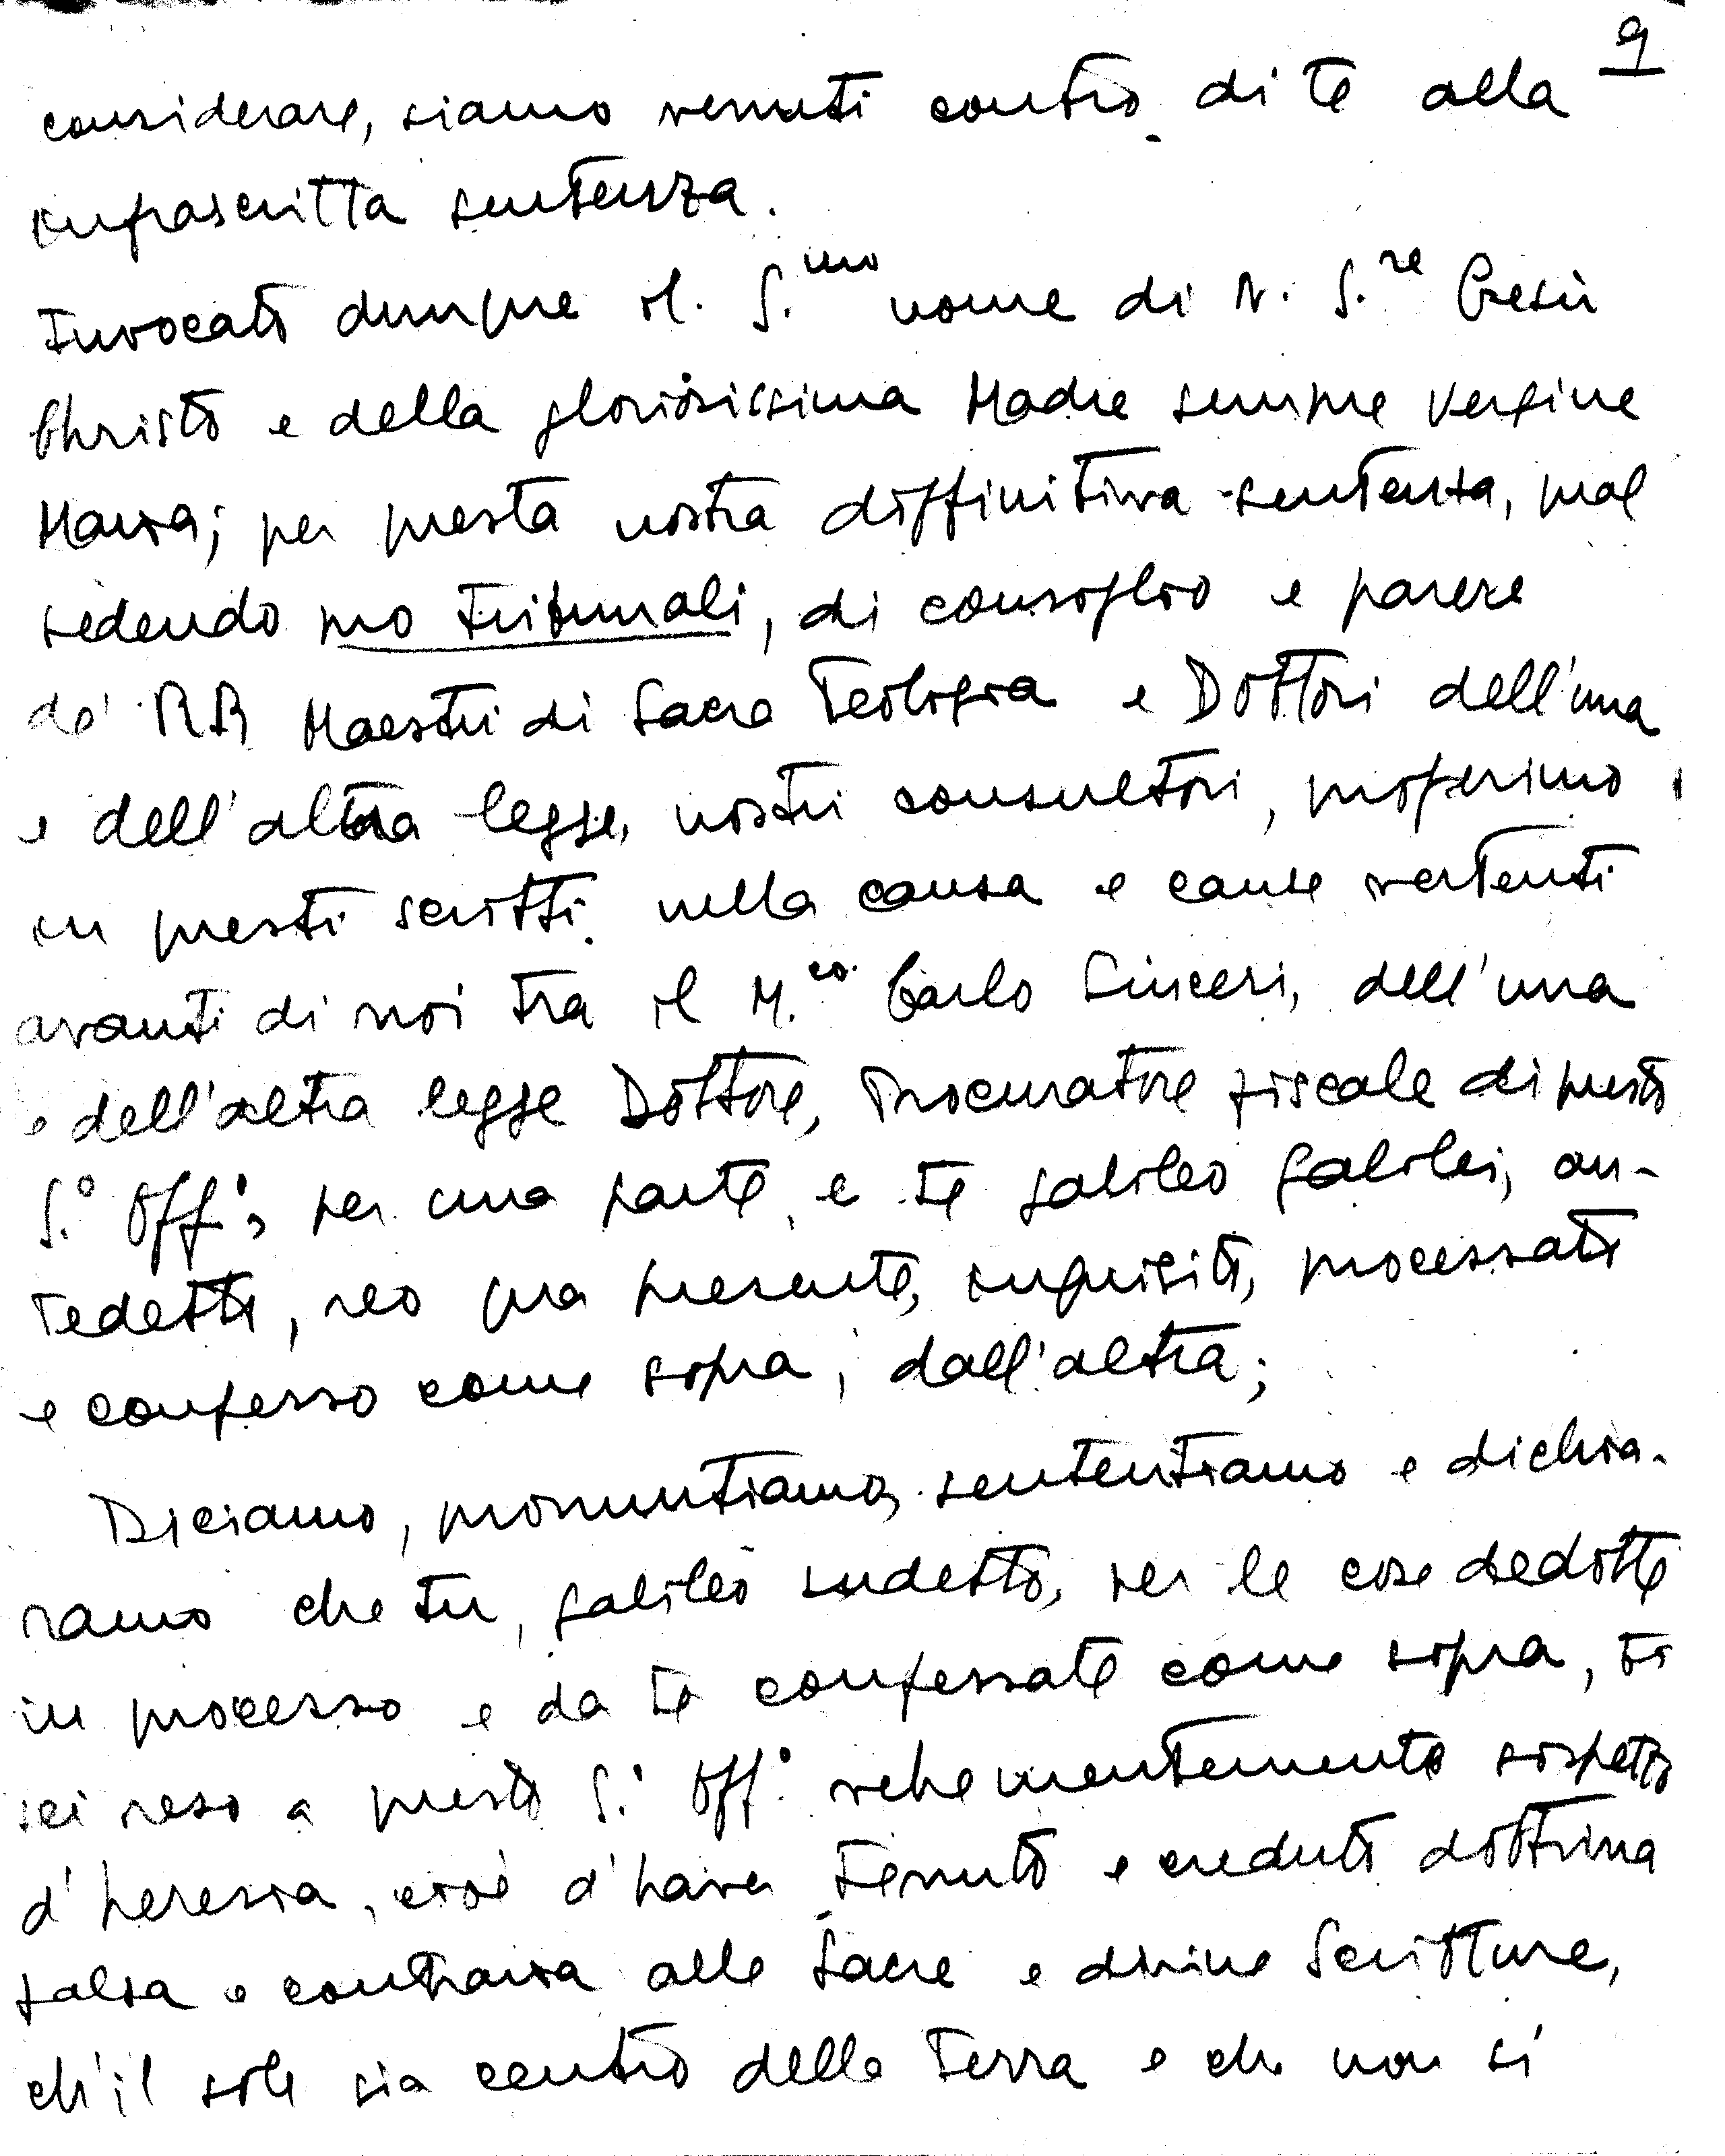 9
considerare, siamo venuti contro di te alla
infrascritta sentenza.
Invocato dunque il S.mo nome di N. S.re Gesù
Christo e della gloriosissima Madre sempre Vergine
Maria; per questa nostra diffinitiva sentenza, qual
sedendo pro tribunali, di consiglio e parere
de' RR Maestri di Sacra Teologia e Dottori dell'una
e dell'altra legge, nostri consultori, proferimo
in questi scritti nella causa e cause vertenti
avanti di noi tra il M.co Carlo Sinceri, dell'una
e dell'altra legge Dottore, Procuratore fiscale di questo
S.o Off.o, per una parte, e te Galileo Galilei, an-
tedetto, reo qua presente, inquisito, processato
e confesso come sopra, dall'altra;
Diciamo, pronuntiamo, sententiamo e dichia-
ramo che tu, Galileo sudetto, per le cose dedotte
in processo e da te confessate come sopra, ti
sei reso a questo S.o Off.o vehementemente sospetto
d'heresia, cioè d'haver tenuto e creduto dottrina
falsa e contraria alle Sacre e divine Scritture,
ch'il sole sia centro della terra e che non si